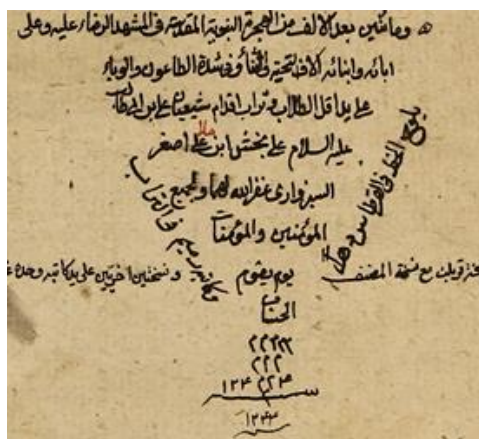 وماتين بعد الالف من الهجرة النبوية المقدسة فى المشهد الرضا عليه وعلى
ابائه وابنائه الاف التحية والثناء وفى شدة الطاعون والوباء
على يد اقل الطلاب وتراب اقدام شيعيان على ابن ابى طالب
عليه السلام على بخش ابن ملا على اصغر
السبزوارى غفر الله لهما ولجميع
المؤمنين والمؤمنات
يوم يقوم
الحساب
يلوح الخط فى القرطاس دهرا
وكاتبه رميم فى التراب
قوبلت مع نسخة المصنف
ونسختين اخريين على يد كاتبه وحده
۱۲۴
۱۲۴۴